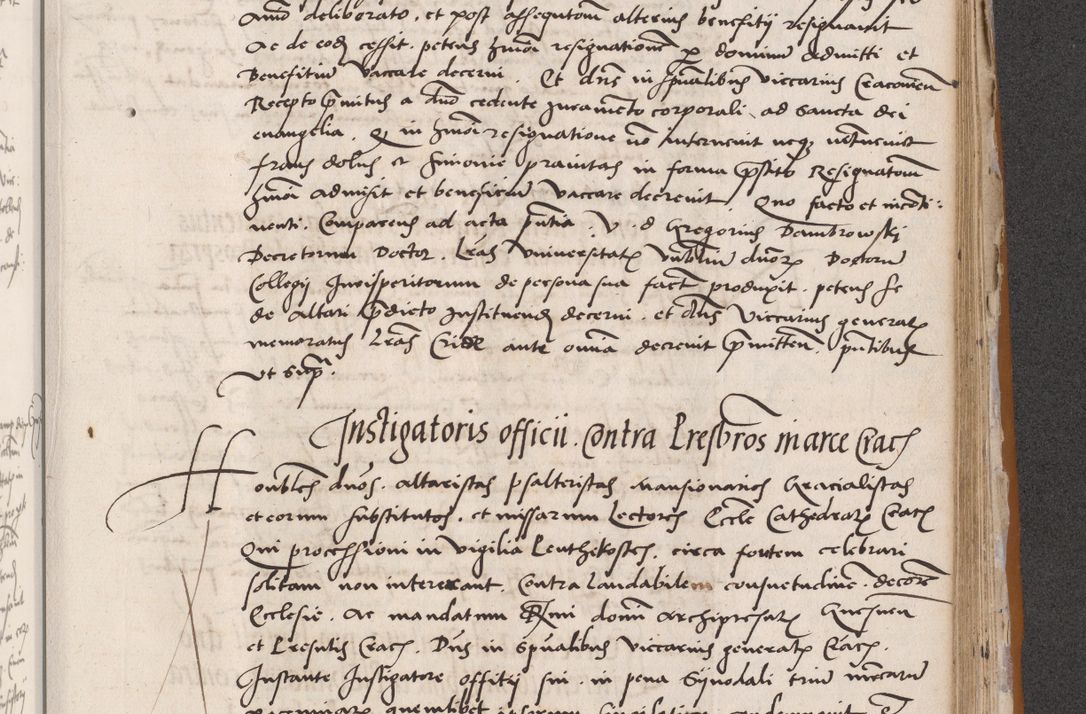 deliberato, et post assequtom alterius benefitij resignavit
Ac de eod cessit. petens hmoi resignationem p dominum Admitti et
Benefitium vaccare decerni. Et dns in spualibus viccarius Cracovien
Recepto pmitus a dno cedente Juramento corporali, ad Sancta dei
evangelia. Q in hmoi resignatione no intervenit neq
fraus dolus et simonie pravitas in forma Resignatom
hmoi admisit et beneficium vaccare decrevit. Quo facto et incoti:
nenti. Comparens ad acta pntia. V. d Gregorius Dambrowskj
Decretorum Doctor. Lras universitatis duor Doctoru
Collegij Jurisperitorum de persona sua fact produxit. petens se
de altari pdicto Instituend decerni. et dns Viccarius general
memoratus lras ante omia decrevit pmitten. pntibus
ut supra.
Instigatoris officii. Contra Presbros in arce Crac
Honobles dnos. altaristas psalteristas Mansionarios Gracialistas
et eorum substitutos. et missarum Lectores Eccle Cathedral Crac
Qui processioni in vigilia Penthekostes. circa fontem celebrari
solitam non intererant. Contra laudabilem consuetudine. decore
Ecclesie. Ac mandatum Rmi domi Archipresul Gnesnen
et Presulis Crac. Dns in spualibus Viccarius general Crac.
Instante Instigatore offitij sui. in pena Synodali trium mercaru
quemlibet ipsorum